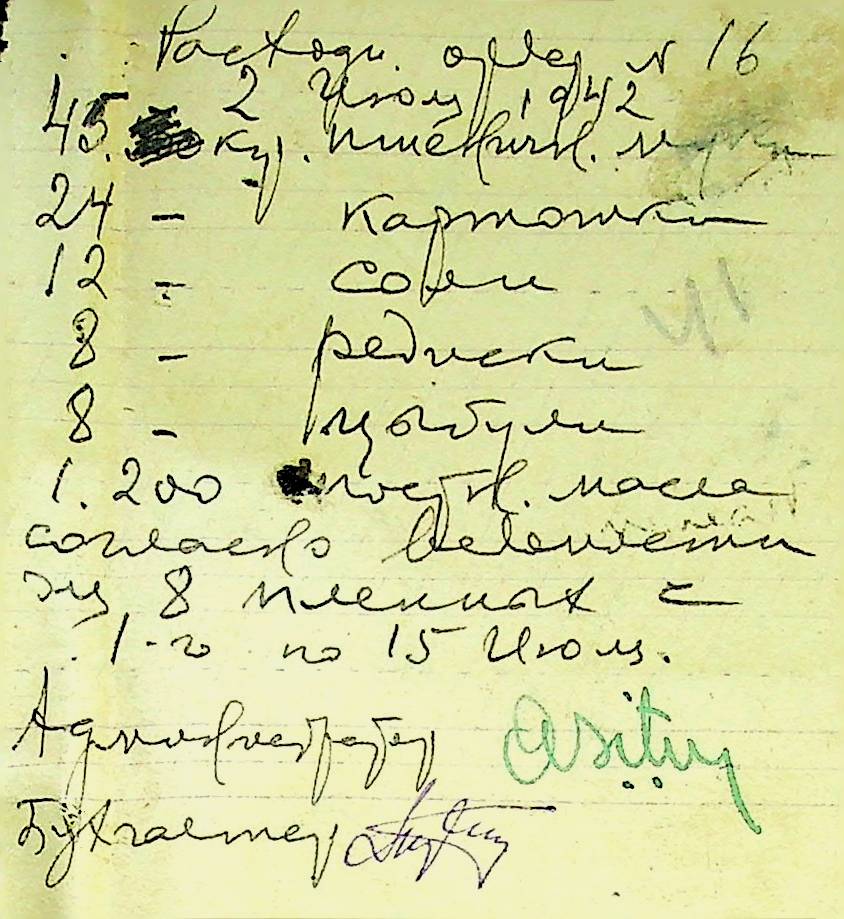 Расходн. ордер N 16
2 Июля 1942
45. кгр. пшеничн. муки
24 – картошки
12 – соли
8 – редиски
8 – цыбули
1.200 постн. масла
согласно ведомости
для 8 пленных с
1-го по 15 Июля.
Администратор
Бухгалтер
41